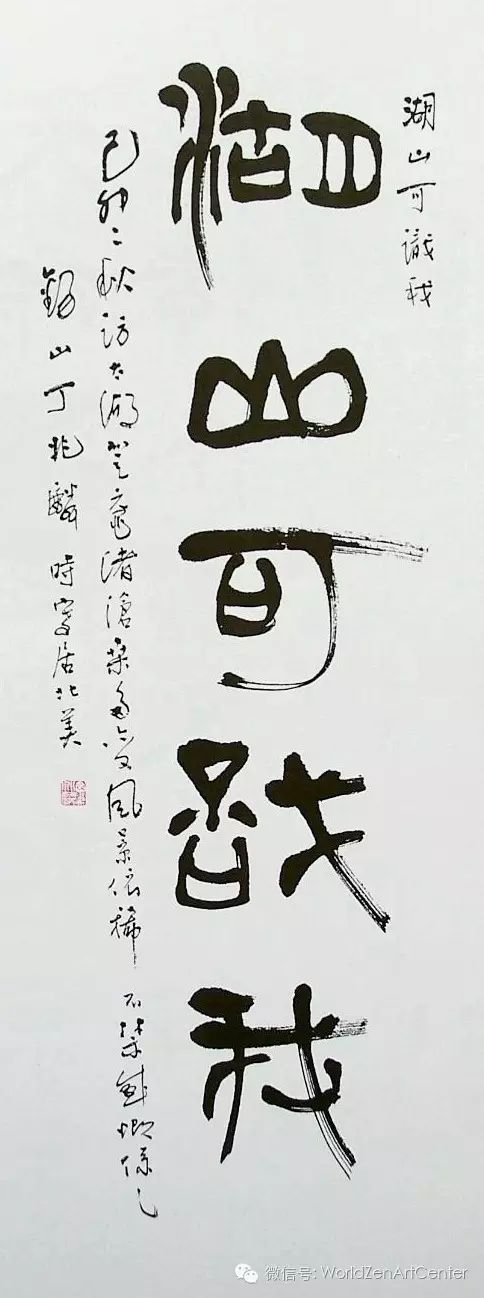 湖山可識我
湖山可識我
己卯之秋訪太湖登黿渚滄桑多變風景依稀 不禁感慨係之
錫山丁兆麟 時寓居北美
微信号: WorldZenArtCenter